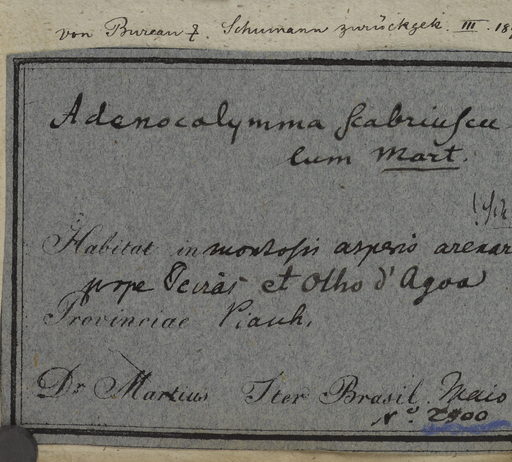 von Bureau & Schumann zurückgek. III. 18
Adenocalymma scabriuscu
lum Mart.
Habitat in montosis asperis arenar
prope Oeiras et Olho d'Agoa
Provinciae Piauh.
Dr Martius Iter Brasil. Maio
No. 2400